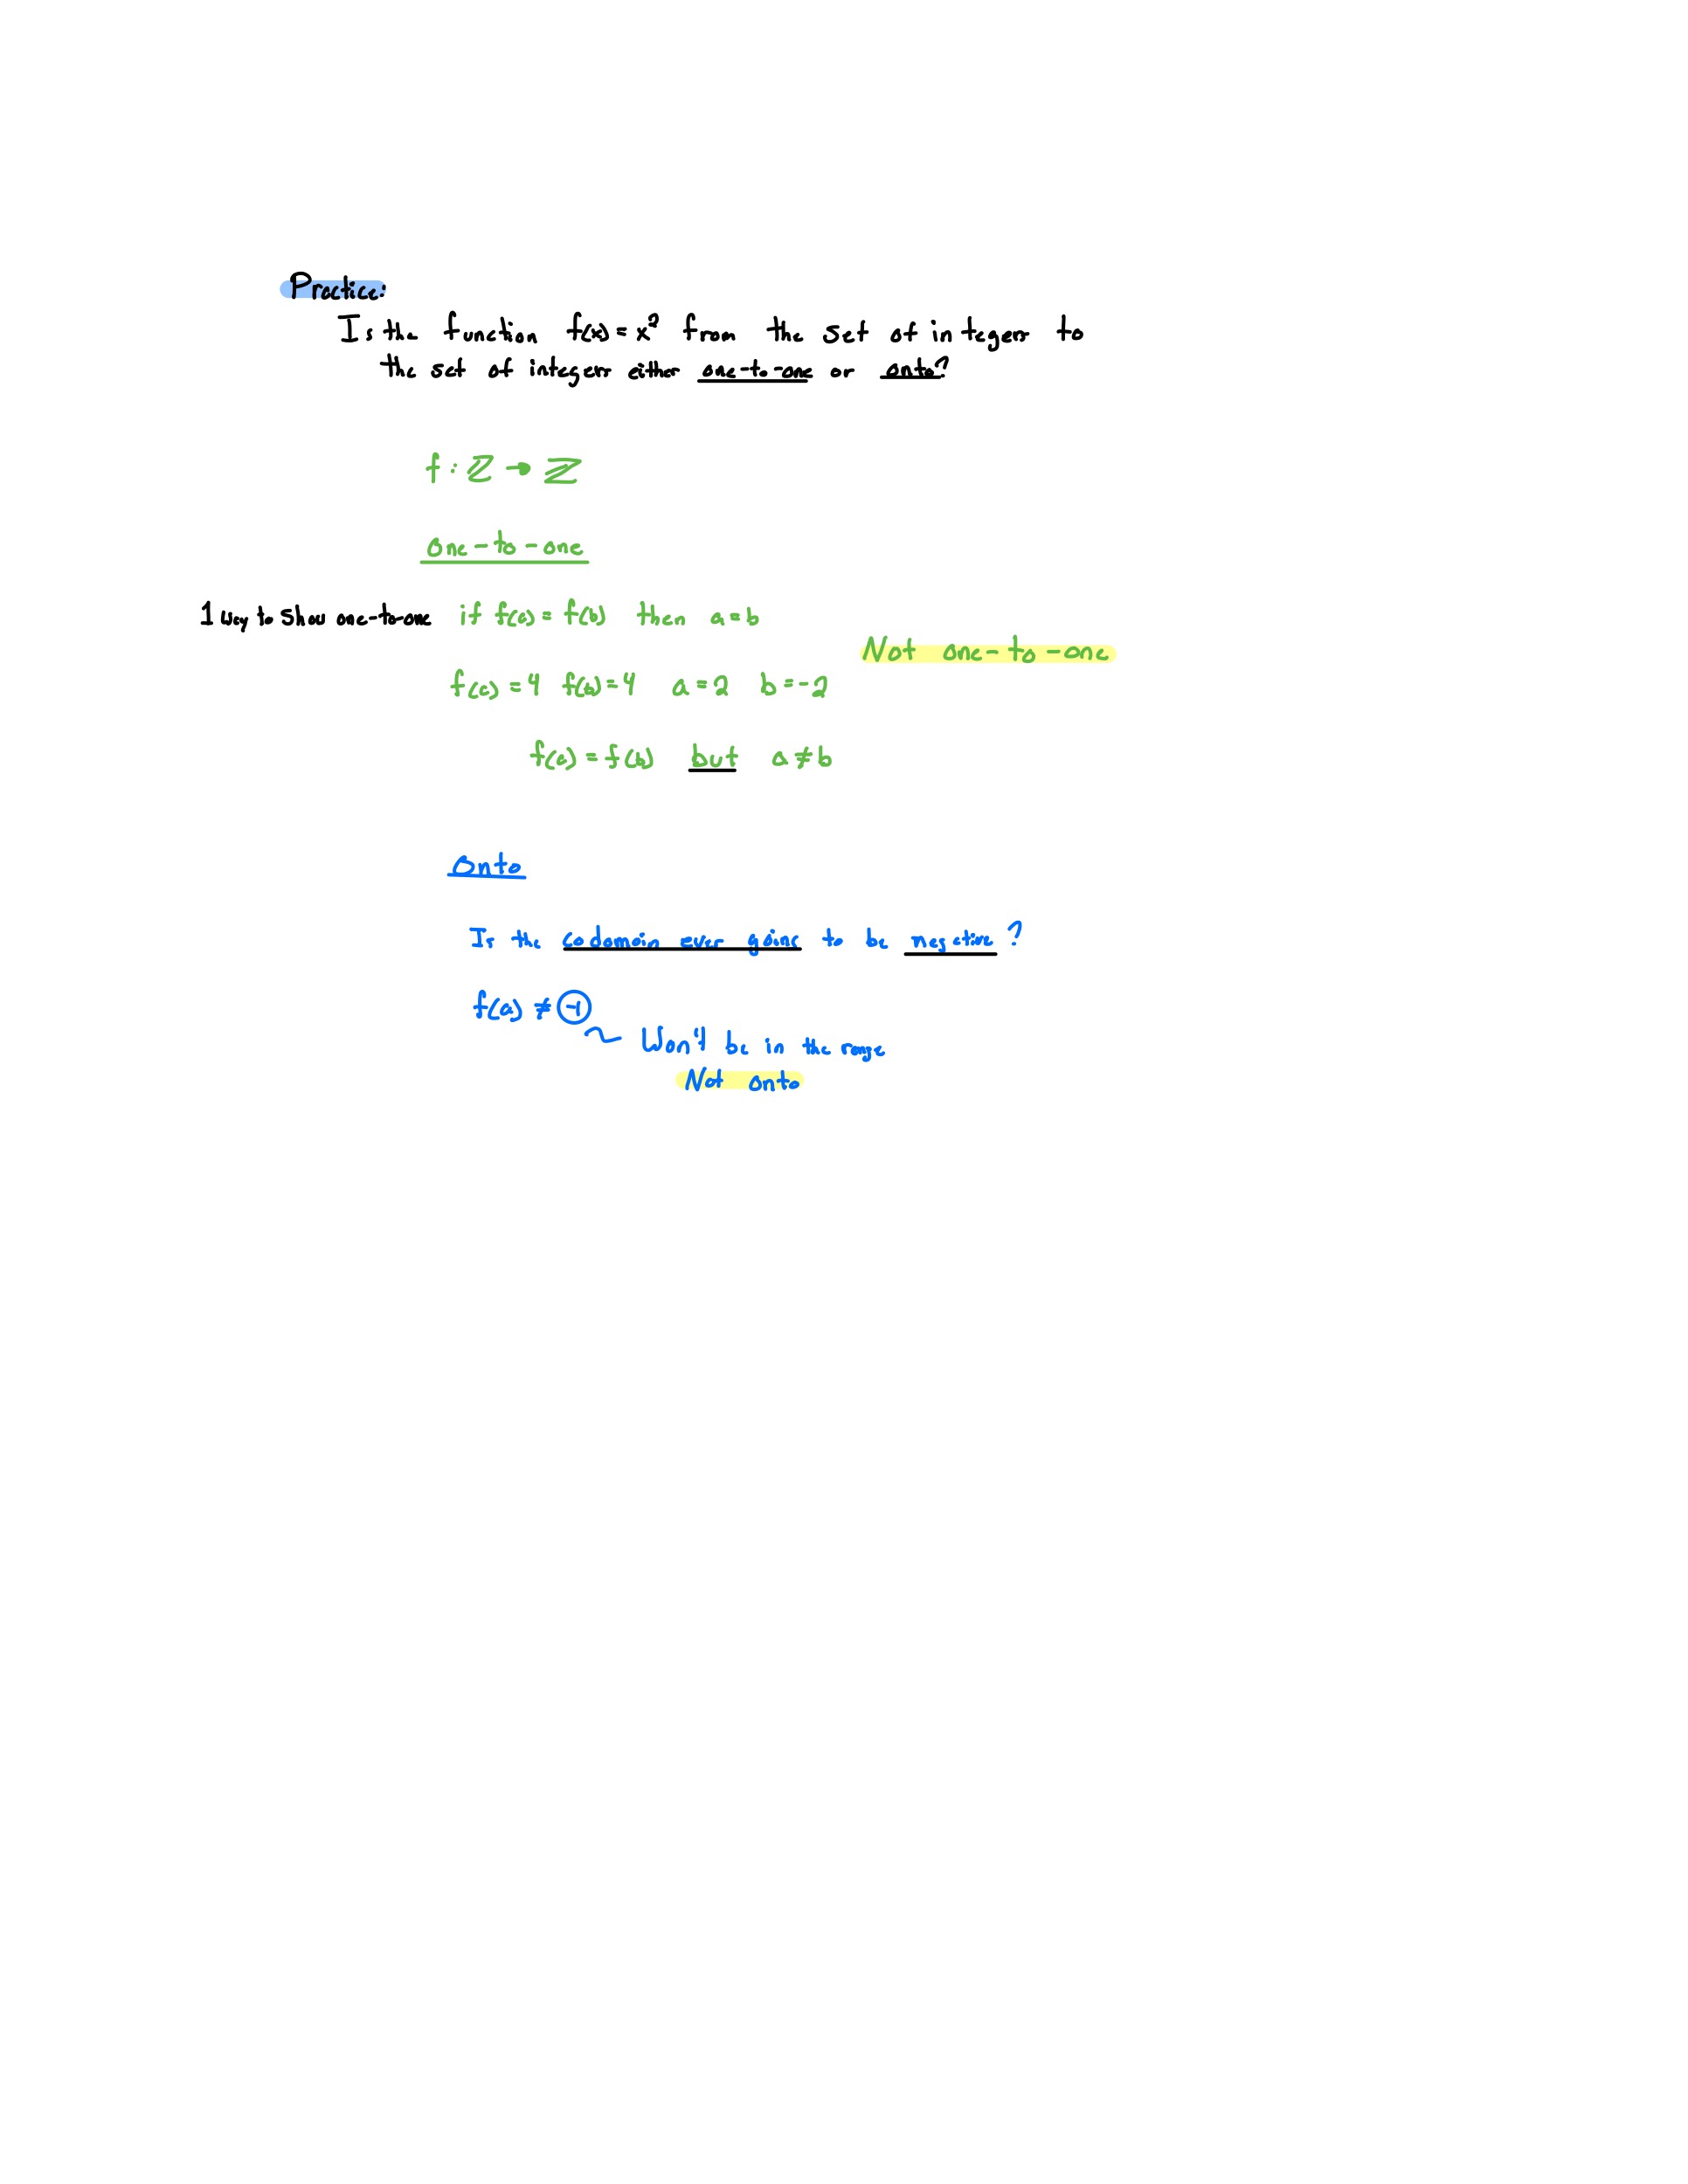 Practice:
Is the function f(x) = x² from the set of integers to
the set of integers either one-to-one or onto?
f : ℤ → ℤ
one-to-one
1 way to show one-to-one if f(a) = f(b) then a = b
Not one-to-one
f(a) = 4 f(b) = 4 a = 2 b = -2
f(a) = f(b) but a ≠ b
onto
Is the codomain ever going to be negative?
f(a) ≠ -1
Won't be in the range
Not onto